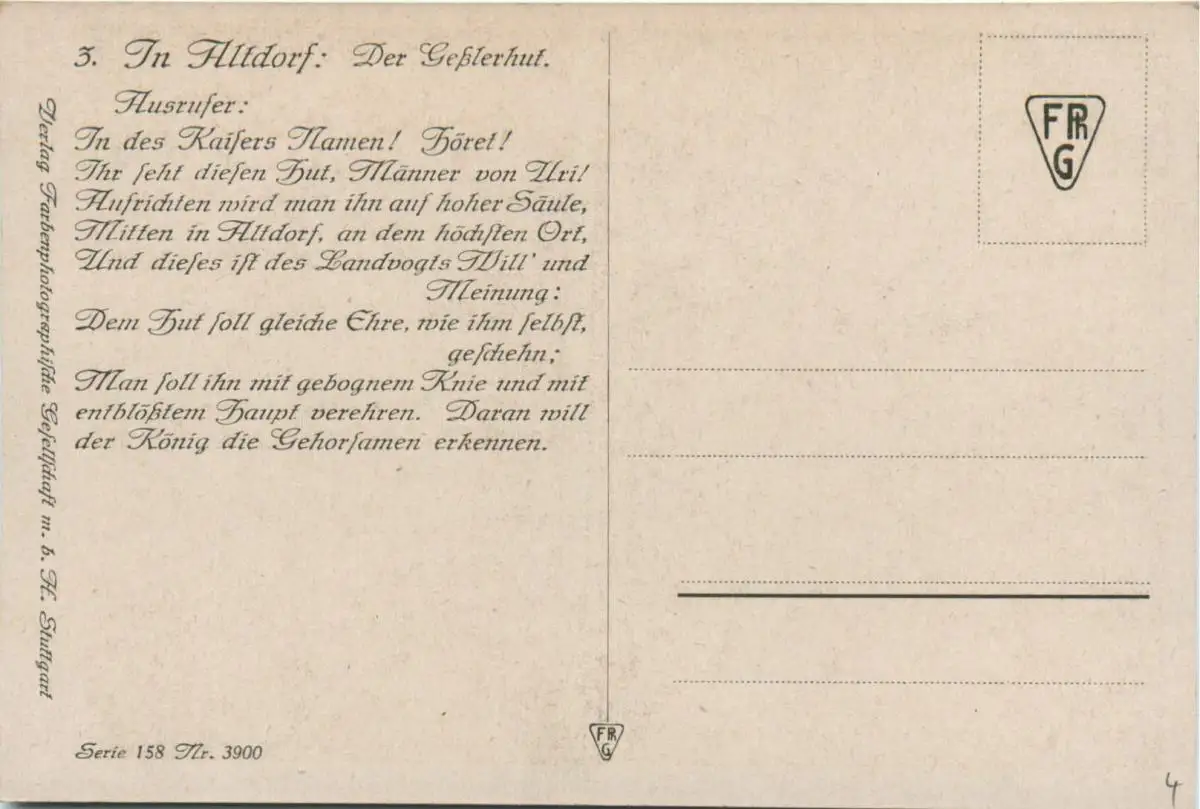 3. In Altdorf: Der Geßlerhut.
Ausrufer:
In des Kaiſers Namen! Höret!
Ihr ſeht dieſen Hut, Männer von Uri!
Aufrichten wird man ihn auf hoher Säule,
Mitten in Altdorf, an dem höchſten Ort,
Und dieſes iſt des Landvogts Will' und
Meinung:
Dem Hut ſoll gleiche Ehre, wie ihm ſelbſt,
geſchehn;
Man ſoll ihn mit gebognem Knie und mit
entblößtem Haupt verehren. Daran will
der König die Gehorſamen erkennen.
Verlag Farbenphotographiſche Geſellſchaft m. b. H. Stuttgart
Serie 158 Nr. 3900
FPh
G
FPh
G
4